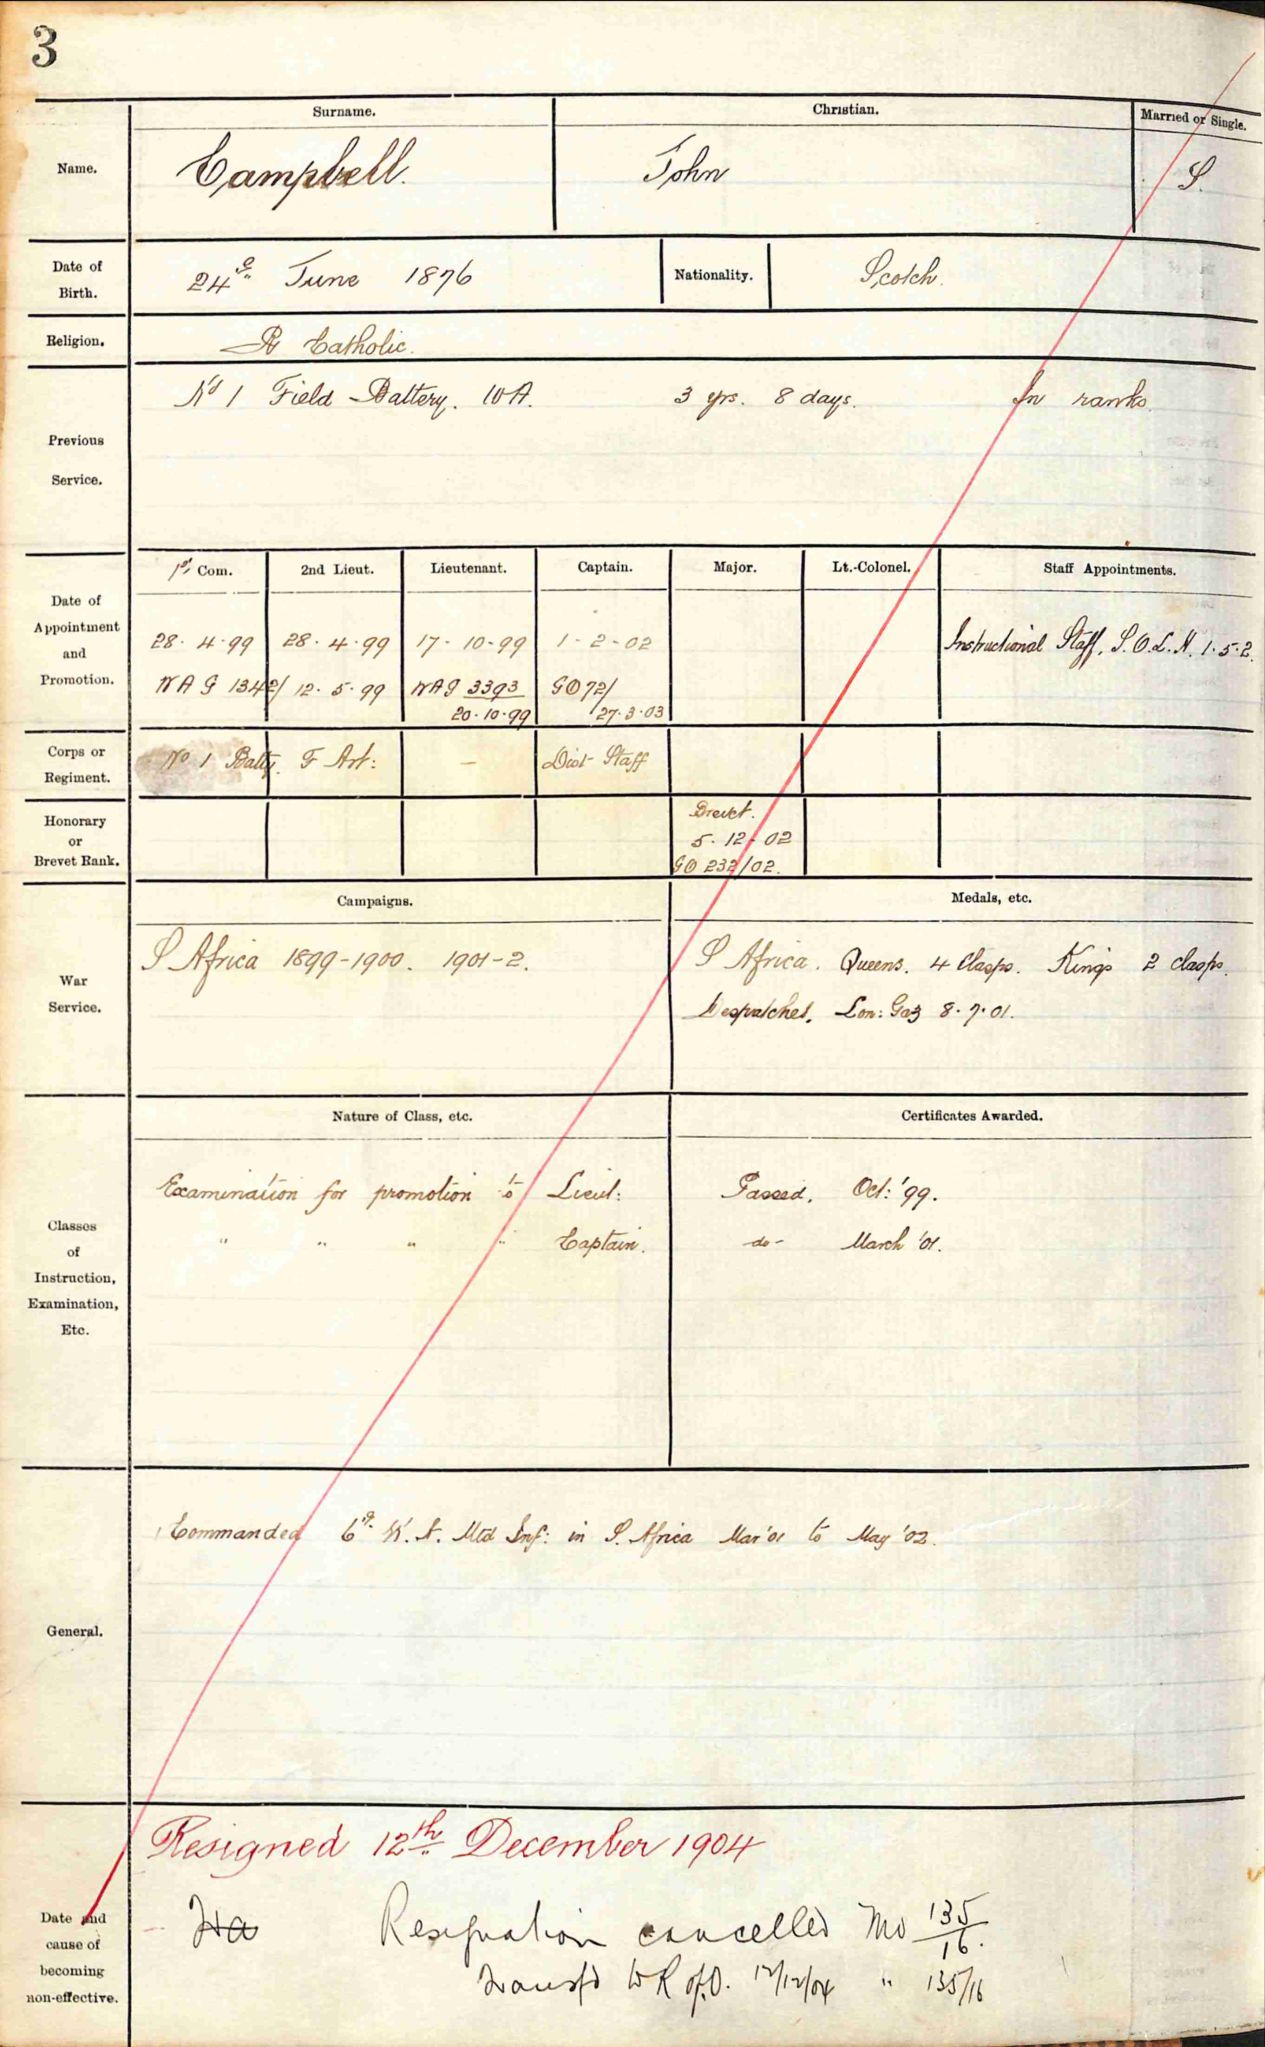 3
Surname. Christian. Married or Single.
Name. Campbell. John S.
Date of Birth. 24th June 1876 Nationality. Scotch.
Religion. R Catholic.
Previous Service. No 1 Field Battery. WA. 3 yrs. 8 days. In ranks.
Date of Appointment and Promotion.
1st Com. 2nd Lieut. Lieutenant. Captain. Major. Lt.-Colonel. Staff Appointments.
28. 4. 99 28. 4. 99 17- 10-99 1-2-02 Instructional Staff, 1. 5. 2.
WAG 1342/ 12. 5. 99 WAG 3393 GO 72/
20.10.99 27.3.03
Corps or Regiment. No 1 Batty. F Art: – Dist Staff
Honorary or Brevet Rank. Brevet.
5. 12. 02
GO 232/02.
War Service.
Campaigns. Medals, etc.
S Africa 1899-1900. 1901-2. S Africa. Queens. 4 Clasps. Kings 2 clasps.
Despatches. Lon: Gaz 8. 7. 01.
Classes of Instruction, Examination, Etc.
Nature of Class, etc. Certificates Awarded.
Examination for promotion to Lieut: Passed. Oct: '99.
" " " " Captain. -do- March '01.
General. Commanded 6th W. A. Mtd Inf: in S. Africa Mar '01 to May '02.
Date and cause of becoming non-effective.
Resigned 12th December 1904
Resignation cancelled MO 135/16.
Transfd to R of O. 12/12/04 " 135/16